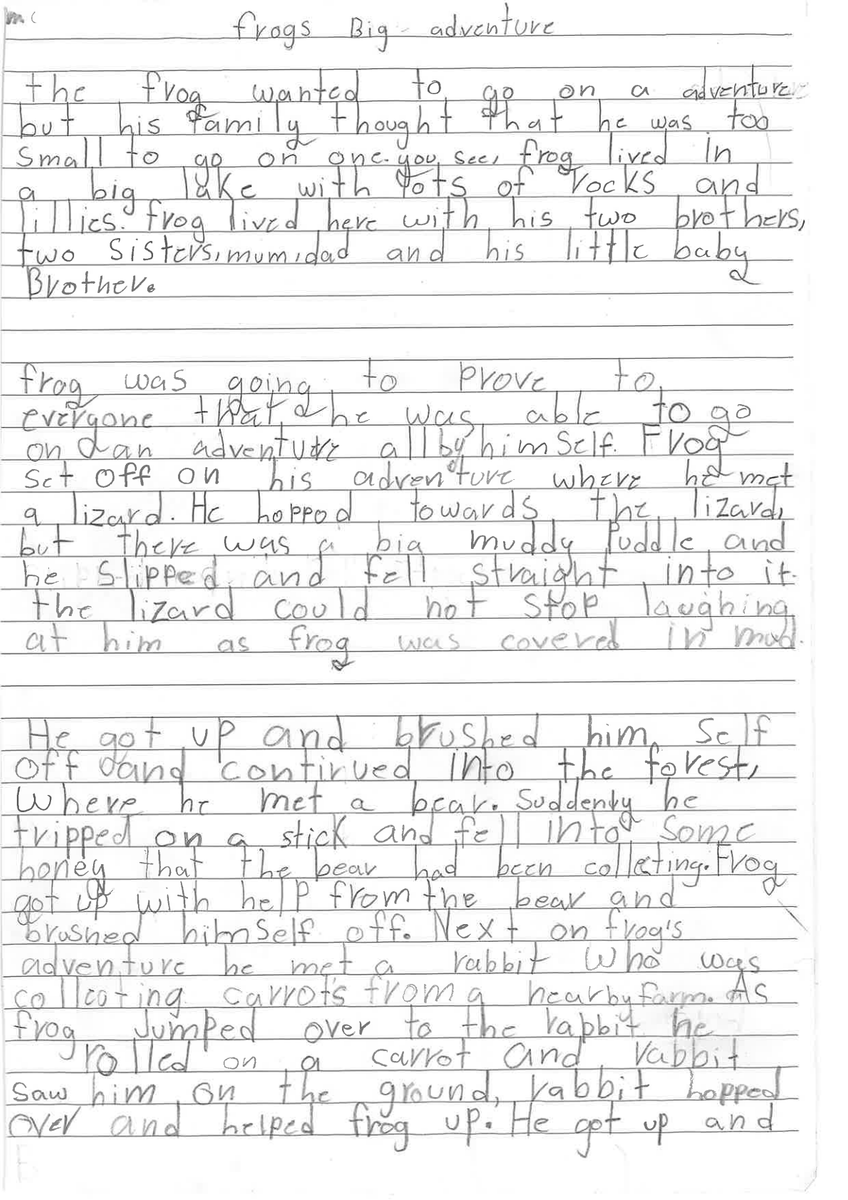 frogs Big adventure
the frog wanted to go on a adventure
but his family thought that he was too
small to go on one. you see, frog lived in
a big lake with lots of rocks and
lillies. frog lived here with his two brothers,
two sisters, mum, dad and his little baby
Brother.
frog was going to prove to
everyone that he was able to go
on an adventure all by himself. Frog
set off on his adventure where he met
a lizard. He hopped towards the lizard,
but there was a big muddy puddle and
he slipped and fell straight into it.
the lizard could not stop laughing
at him as frog was covered in mud.
He got up and brushed him self
off and continued into the forest,
where he met a bear. Suddenly he
tripped on a stick and fell into some
honey that the bear had been colleting. Frog
got up with help from the bear and
brushed himself off. Next on frog's
adventure he met a rabbit who was
collecting carrots from a nearby farm. As
frog jumped over to the rabbit he
rolled on a carrot and rabbit
saw him on the ground, rabbit hopped
over and helped frog up. He got up and